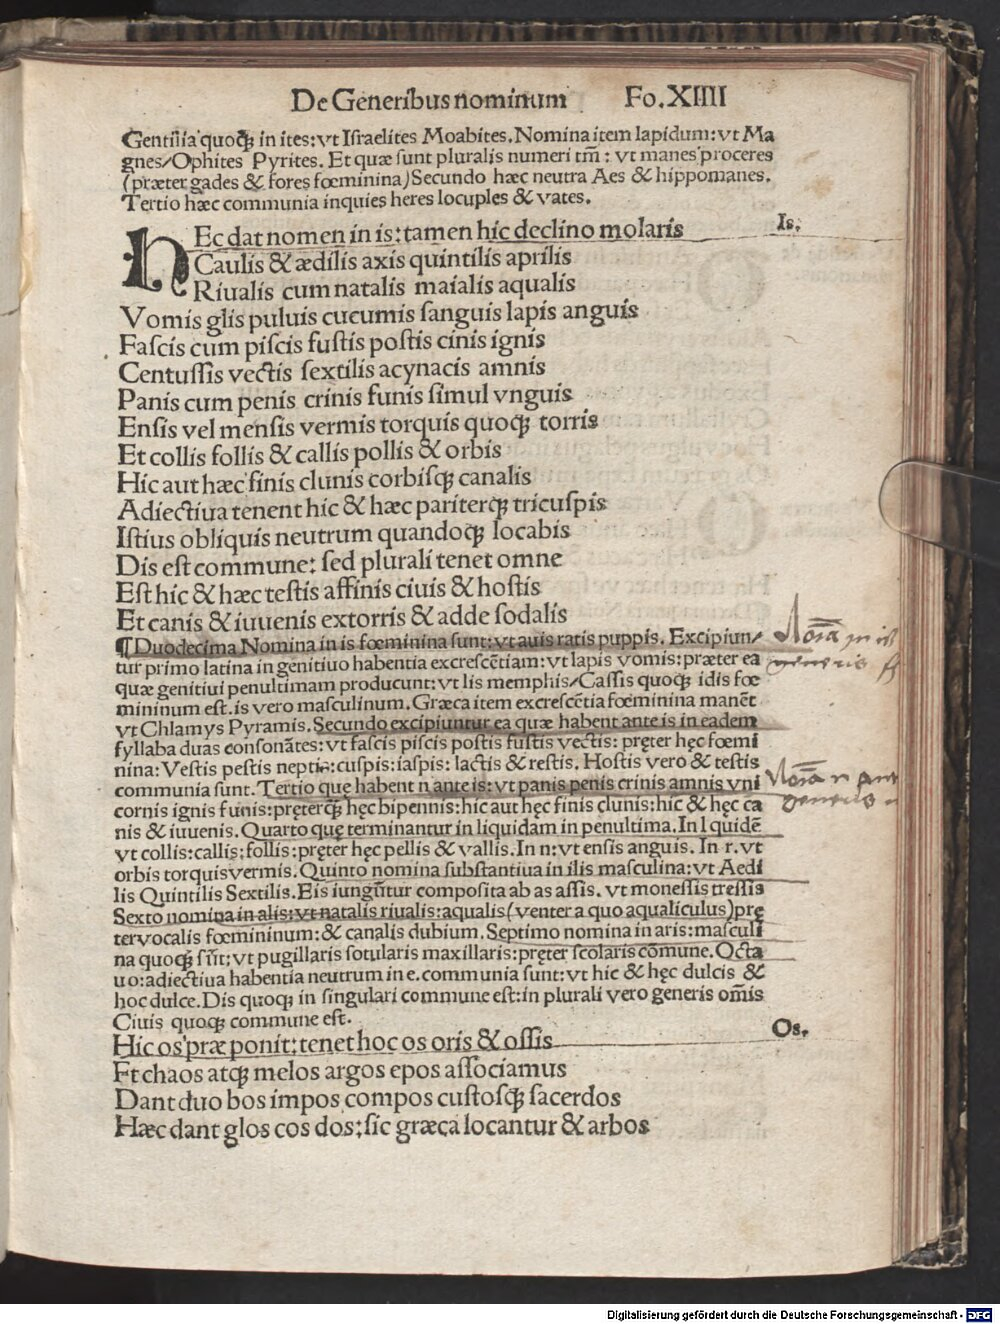 De Generibus nominum Fo.XIIII
Gentilia quoqꝫ in ites: vt Iſraelites Moabites. Nomina item lapidum: vt Ma
gnes/Ophites Pyrites. Et quæ ſunt pluralis numeri tm̄: vt manes proceres
(præter gades & fores fœminina) Secundo hæc neutra Aes & hippomanes.
Tertio hæc communia inquies heres locuples & vates.
HEc dat nomen in is: tamen hic declino molaris Is.
Caulis & ædilis axis quintilis aprilis
Riualis cum natalis maialis aqualis
Vomis glis puluis cucumis ſanguis lapis anguis
Faſcis cum piſcis fuſtis poſtis cinis ignis
Centuſſis vectis ſextilis acynacis amnis
Panis cum penis crinis funis ſimul vnguis
Enſis vel menſis vermis torquis quoqꝫ torris
Et collis follis & callis pollis & orbis
Hic aut hæc finis clunis corbiſqꝫ canalis
Adiectiua tenent hic & hæc pariterqꝫ tricuſpis
Iſtius obliquis neutrum quandoqꝫ locabis
Dis eſt commune: ſed plurali tenet omne
Eſt hic & hæc teſtis affinis ciuis & hoſtis
Et canis & iuuenis extorris & adde ſodalis
¶ Duodecima Nomina in is fœminina ſunt: vt auis ratis puppis. Excipiun/
tur primo latina in genitiuo habentia excreſcẽtiam: vt lapis vomis: præter ea
quæ genitiui penultimam producunt: vt lis memphis/Caſſis quoqꝫ idis fœ
mininum eſt. is vero maſculinum. Græca item excreſcẽtia fœminina manẽt
vt Chlamys Pyramis. Secundo excipiuntur ea quæ habent ante is in eadem
ſyllaba duas conſonãtes: vt faſcis piſcis poſtis fuſtis vectis: pręter hęc fœmi
nina: Veſtis peſtis neptis: cuſpis: iaſpis: lactis & reſtis. Hoſtis vero & teſtis
communia ſunt. Tertio quę habent n ante is: vt panis penis crinis amnis vni
cornis ignis funis: pręterqꝫ hęc bipennis: hic aut hęc finis clunis: hic & hęc ca
nis & iuuenis. Quarto quę terminantur in liquidam in penultima. In l quidẽ
vt collis: callis: follis: pręter hęc pellis & vallis. In n: vt enſis anguis. In r. vt
orbis torquis vermis. Quinto nomina ſubſtantiua in ilis maſculina: vt Aedi
lis Quintilis Sextilis. Eis iungũtur compoſita ab as aſſis. vt moneſſis treſſis
Sexto nomina in alis: vt natalis riualis: aqualis (venter a quo aqualiculus) prę
ter vocalis fœmininum: & canalis dubium. Septimo nomina in aris: maſculi
na quoqꝫ ſũt: vt pugillaris ſotularis maxillaris: pręter ſcolaris cõmune. Octa
uo: adiectiua habentia neutrum in e. communia ſunt: vt hic & hęc dulcis &
hoc dulce. Dis quoqꝫ in ſingulari commune eſt: in plurali vero generis om̄is
Ciuis quoqꝫ commune eſt.
Hic os præ ponit: tenet hoc os oris & oſſis Os.
Et chaos atqꝫ melos argos epos aſſociamus
Dant duo bos impos compos cuſtoſqꝫ ſacerdos
Hæc dant glos cos dos: ſic græca locantur & arbos
Digitalisierung gefördert durch die Deutsche Forschungsgemeinschaft - DFG